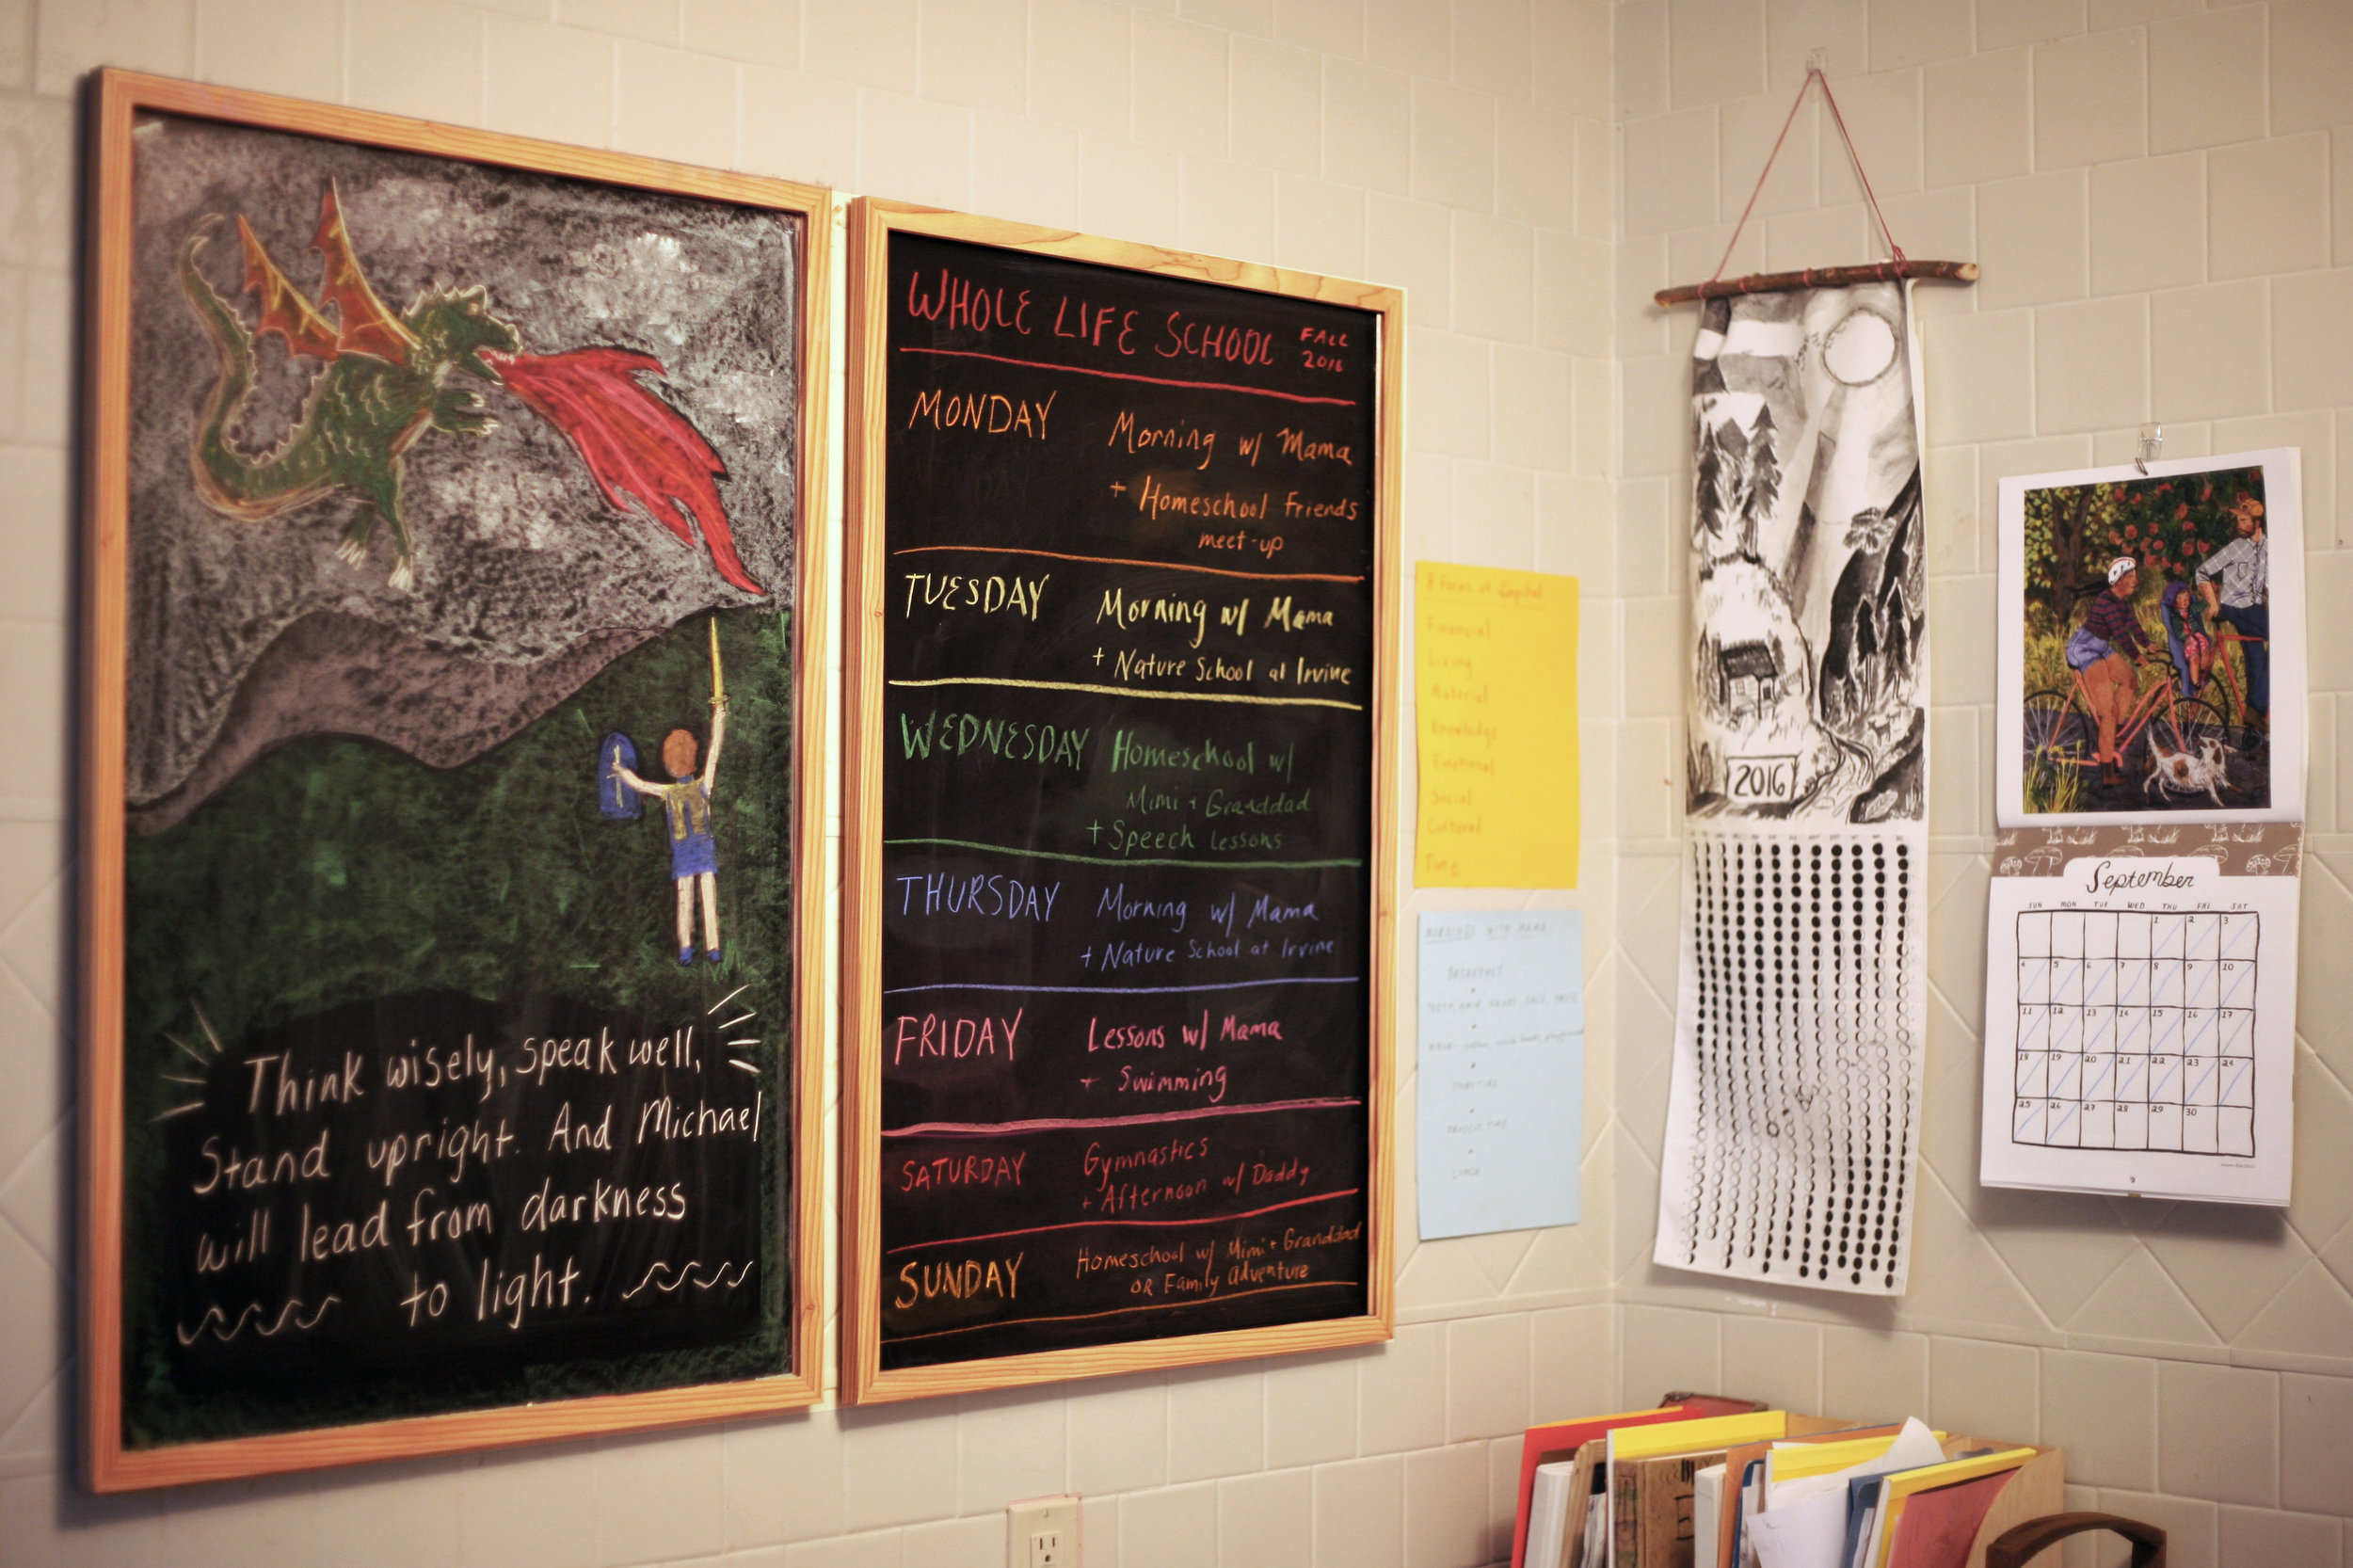 Think wisely, speak well,
Stand upright. And Michael
will lead from darkness
to light.
WHOLE LIFE SCHOOL FALL
2016
MONDAY Morning w/ Mama
+ Homeschool Friends
meet-up
TUESDAY Morning w/ Mama
+ Nature School at Irvine
WEDNESDAY Homeschool w/
Mimi + Granddad
+ Speech Lessons
THURSDAY Morning w/ Mama
+ Nature School at Irvine
FRIDAY Lessons w/ Mama
+ Swimming
SATURDAY Gymnastics
+ Afternoon w/ Daddy
SUNDAY Homeschool w/ Mimi + Granddad
OR Family Adventure
8 Forms of Capital
Financial
Living
Material
Knowledge
Emotional
Social
Cultural
Time
MORNINGS WITH MAMA
BREAKFAST
STORYTIME
LUNCH
2016
September
SUN MON TUE WED THU FRI SAT
1 2 3
4 5 6 7 8 9 10
11 12 13 14 15 16 17
18 19 20 21 22 23 24
25 26 27 28 29 30
9